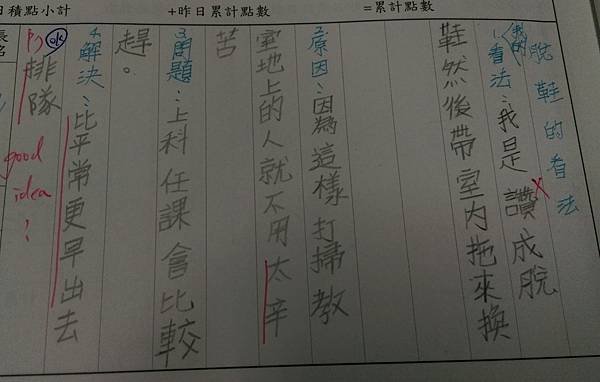 日積點小計
+昨日累計點數
=累計點數
長
名
脫鞋的看法
(我的)
1.看法:我是讚成脫
鞋然後帶室內拖來換
2.原因:因為這樣打掃教
室地上的人就不用太辛
苦
3.問題:上科任課會比較
趕。
4.解決:比平常更早出去
排隊
ok
good
idea!